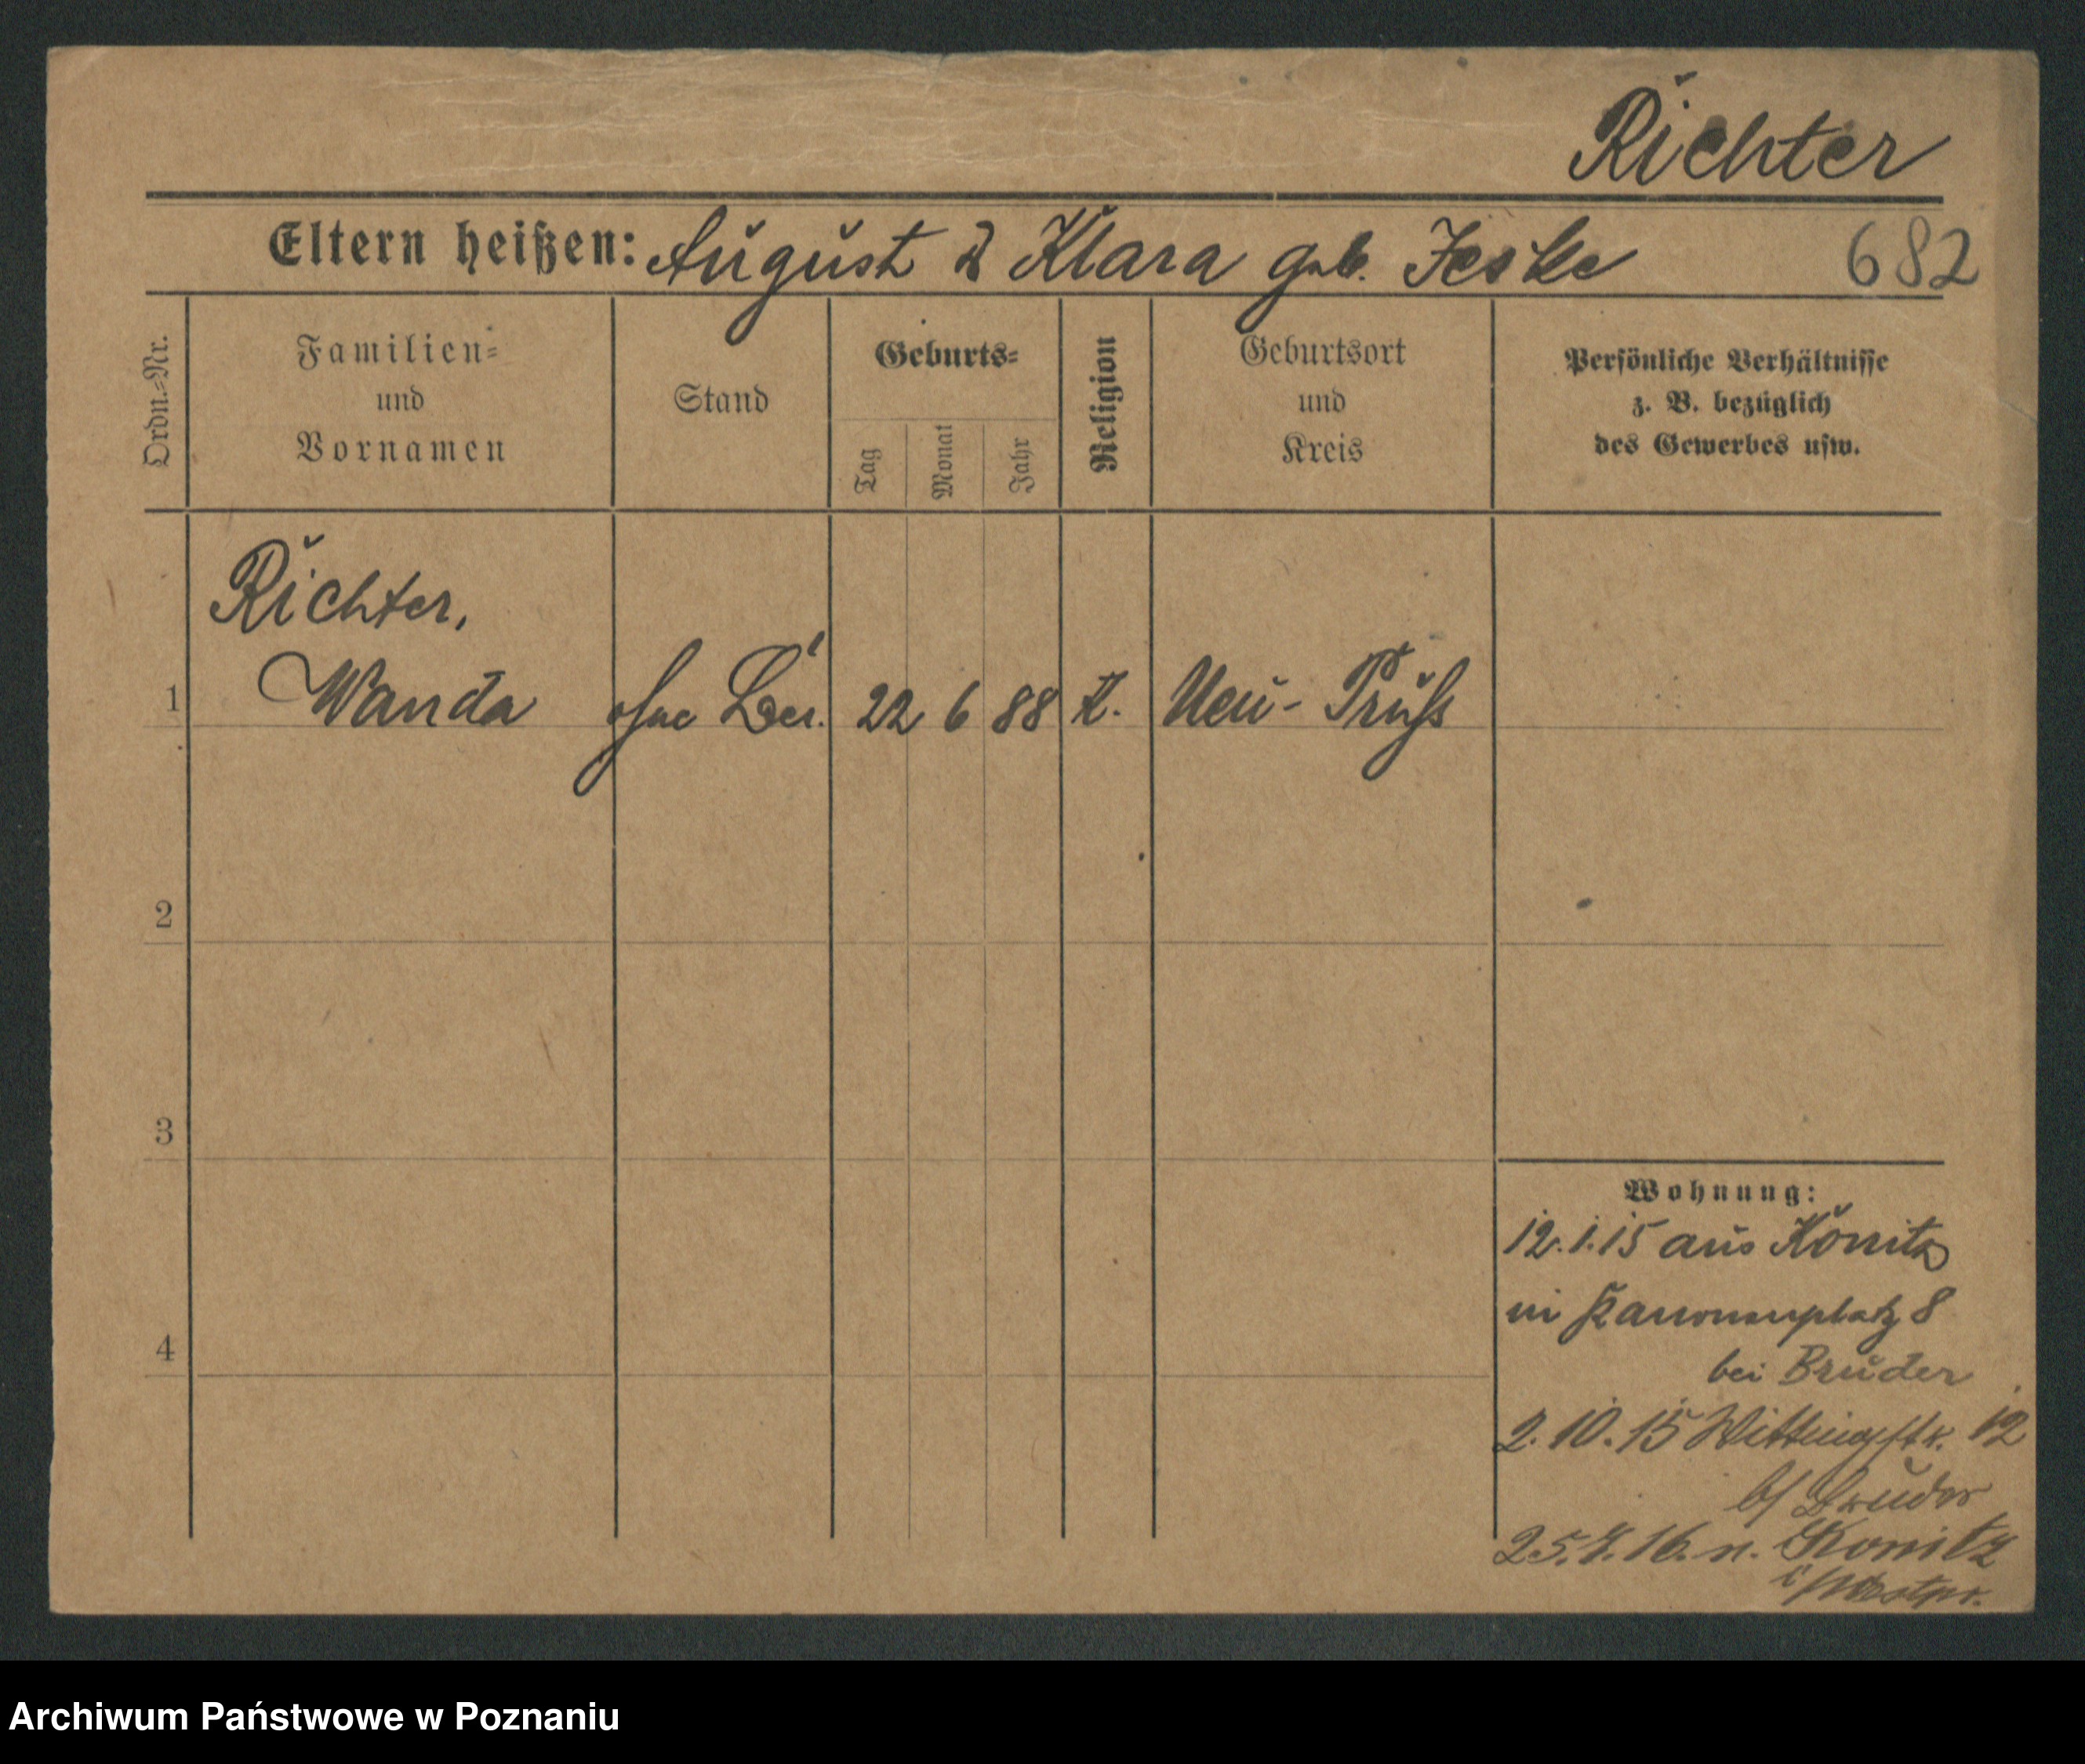 Richter
Eltern heißen: August & Klara geb. Jeske 682
Ordn.-Nr.
Familien-
und
Vornamen
Stand
Geburts-
Tag
Monat
Jahr
Religion
Geburtsort
und
Kreis
Persönliche Verhältnisse
z. B. bezüglich
des Gewerbes usw.
Richter,
1 Wanda ohne Ber. 22 6 88 k. Neu-Pruß
2
3
4
Wohnung:
12.1.15 aus Konitz
in Kanonenplatz 8
bei Bruder
2.10.15 Wittingstr. 12
b/ Bruder
25.7.16. n. Konitz
i/Westpr.
Archiwum Państwowe w Poznaniu